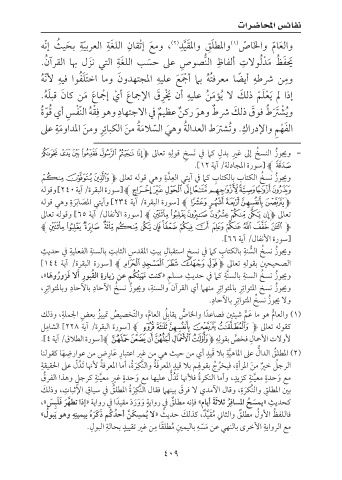 نفائس المحاضرات
والعَامُّ والخَاصُّ(١) والمطلَق والمقيَّد(٢)، ومعَ إتْقَانِ اللغَةِ العربيّةِ بحَيثُ إنّه
يَحْفَظُ مَدْلُولَاتِ ألفاظِ النُّصوصِ على حسَبِ اللغَةِ التي نَزَل بها القرآنُ.
ومن شرطِهِ أيضًا معرِفتُهُ بما أجْمَعَ عليهِ المجتهدونَ وما اختَلَفُوا فيهِ لأنّهُ
إذا لم يَعلَمْ ذلكَ لا يُؤمَنُ عليهِ أنْ يَخْرِقَ الإجماعَ أيْ إجْماعَ مَن كانَ قبلَهُ.
ويُشْتَرَطُ فوقَ ذلكَ شرطٌ وهوَ ركنٌ عظيمٌ في الاجتهادِ وهو فِقْهُ النَّفْسِ أي قُوّةُ
الفَهْمِ والإدراكِ. وتُشتَرط العدالَةُ وهيَ السّلامةُ منَ الكبائرِ ومنَ المداومَةِ على
= ويجوزُ النسخُ إلى غيرِ بدلٍ كما في نسخِ قولِه تعالى ﴿إِذَا نَاجَيْتُمُ الرَّسُولَ فَقَدِّمُوا بَيْنَ يَدَيْ نَجْوَاكُمْ
صَدَقَةً﴾ [سورة المجادلة/ آية ١٢].
ويجوزُ نسخُ الكتابِ بالكتابِ كما في آيتَي العِدّةِ وهي قوله تعالى ﴿وَالَّذِينَ يُتَوَفَّوْنَ مِنكُمْ
وَيَذَرُونَ أَزْوَاجًا وَصِيَّةً لِّأَزْوَاجِهِم مَّتَاعًا إِلَى الْحَوْلِ غَيْرَ إِخْرَاجٍ﴾ [سورة البقرة/ آية ٢٤٠] وقوله
﴿يَتَرَبَّصْنَ بِأَنفُسِهِنَّ أَرْبَعَةَ أَشْهُرٍ وَعَشْرًا﴾ [سورة البقرة/ آية ٢٣٤] وآيتي المصابَرةِ وهي قوله
تعالى ﴿إِن يَكُن مِّنكُمْ عِشْرُونَ صَابِرُونَ يَغْلِبُوا مِائَتَيْنِ﴾ [سورة الأنفال/ آية ٦٥] وقوله تعالى
﴿الْآنَ خَفَّفَ اللَّهُ عَنكُمْ وَعَلِمَ أَنَّ فِيكُمْ ضَعْفًا فَإِن يَكُن مِّنكُم مِّائَةٌ صَابِرَةٌ يَغْلِبُوا مِائَتَيْنِ﴾
[سورة الأنفال/ آية ٦٦].
ويجوزُ نسخُ السُّنةِ بالكتابِ كما في نسخِ استقبالِ بيتِ المقدسِ الثابتِ بالسنةِ الفعليةِ في حديثِ
الصحيحينِ بقولِه تعالى ﴿فَوَلِّ وَجْهَكَ شَطْرَ الْمَسْجِدِ الْحَرَامِ﴾ [سورة البقرة/ آية ١٤٤]
ويجوزُ نسخُ السنةِ بالسنّةِ كما في حديث مسلم «كنت نهيتُكُم عن زيارة القُبورِ ألا فَزُورُوهَا».
ويجوزُ نسخُ المتواترِ بالمتواترِ منهما أي القرآن والسنة، ويجوزُ نسخُ الآحادِ بالآحادِ وبالمتواترِ،
ولا يجوزُ نسخُ المتواترِ بالآحادِ.
(١) والعامُّ هو ما عَمَّ شيئينِ فصاعدًا والخاصُّ يقابلُ العامَّ، والتخصيصُ تمييزُ بعضِ الجملةِ، وذلكَ
كقولِه تعالى ﴿وَالْمُطَلَّقَاتُ يَتَرَبَّصْنَ بِأَنفُسِهِنَّ ثَلَاثَةَ قُرُوءٍ﴾ [سورة البقرة/ آية ٢٢٨] الشاملِ
لأولات الأحمالِ فخصَّ بقولِه ﴿وَأُولَاتُ الْأَحْمَالِ أَجَلُهُنَّ أَن يَضَعْنَ حَمْلَهُنَّ﴾ [سورة الطلاق/ آية ٤].
(٢) المطلَق الدالُّ على الماهيّةِ بلا قيدٍ أي من حيث هي من غيرِ اعتبارِ عارضٍ من عوارضِها كقولنا
الرجلُ خيرٌ منَ المرأةِ، فيخرُجُ بقولِهم بلا قيدٍ المعرفةُ والنَّكِرَةُ، أما المعرفةُ لأنها تَدُلُّ على الحقيقةِ
مع وَحدةٍ معيَّنةٍ كزيدٍ، وأما النكرة فلأنها تدُلُّ عليها مع وَحدةٍ غيرِ معيَّنةٍ كرجلٍ وهذا الفرقُ
بين المطلَقِ والنّكرةِ، وقال الآمدي لا فرقَ بينهما فقال النَّكرةُ المطلَقُ في سياقِ الإثباتِ، وذلك
كحديث «يمسَحُ المسافرُ ثلاثةَ أيّام» فإنه مطلَقٌ في روايةٍ وَوَرَدَ مقيدًا في روايةِ «إذا تطهَّرَ فَلَبِسَ»،
فاللفظُ الأولُ مطلَقٌ والثاني مقَيَّد، كذلكَ حديثُ «لا يُمسِكنَّ أحدُكُم ذكرَهُ بيمينهِ وهو يَبولُ»
مع الروايةِ الأخرى بالنهيِ عن مَسّهِ باليمينِ مُطلَقًا مِن غيرِ تقييدٍ بحالةِ البولِ.
٤٠٩